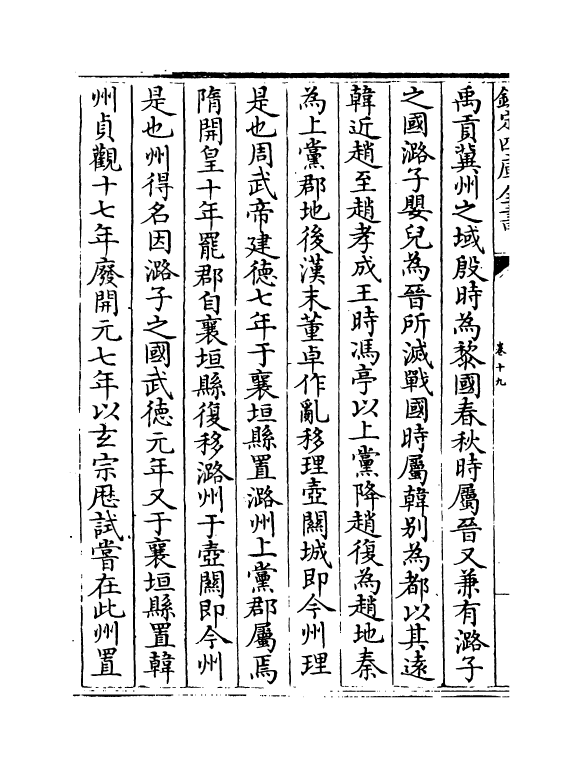 欽定四庫全書
卷十九
禹貢冀州之域殷時為黎國春秋時屬晉又兼有潞子
之國潞子嬰兒為晉所滅戰國時屬韓别為都以其遠
韓近趙至趙孝成王時馮亭以上黨降趙復為趙地秦
為上黨郡地後漢末董卓作亂移理壺闗城即今州理
是也周武帝建徳七年于襄垣縣置潞州上黨郡屬焉
隋開皇十年罷郡自襄垣縣復移潞州于壺闗即今州
是也州得名因潞子之國武徳元年又于襄垣縣置韓
州貞觀十七年廢開元七年以玄宗厯試嘗在此州置